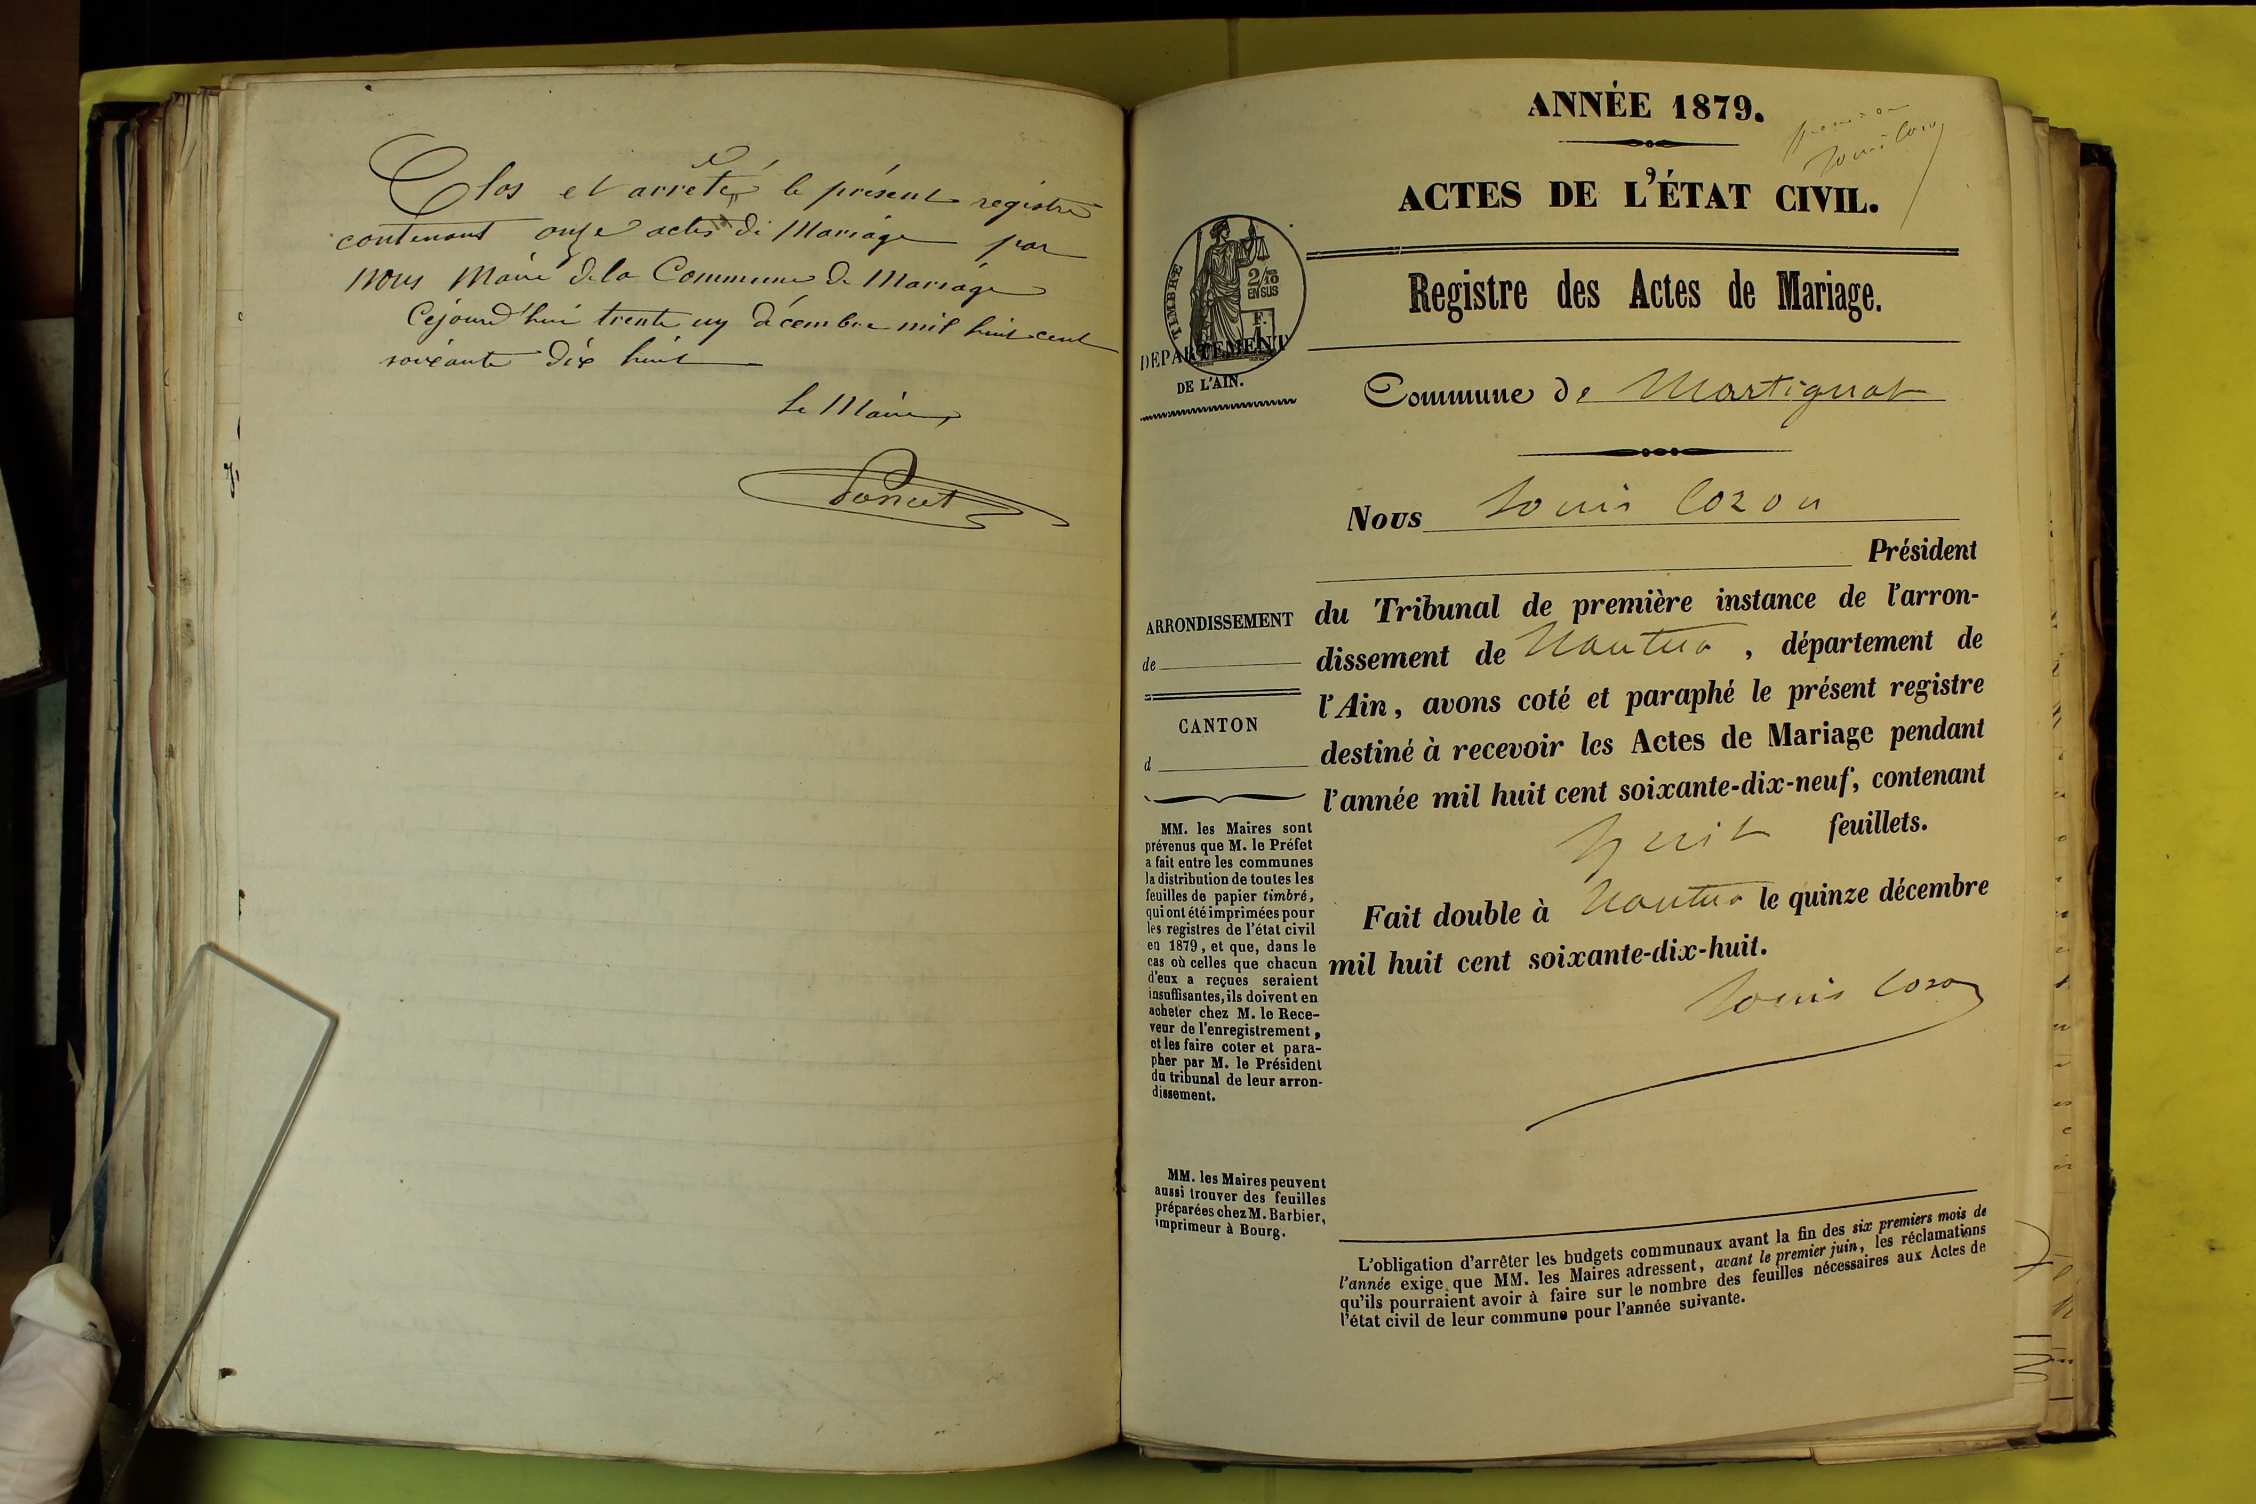 Clos et arrêté le présent registre
contenant onze actes de Mariage par
nous Maire de la Commune de Mariage
Cejourd'hui trente un décembre mil huit cent
soixante dix huit
Le Maire
Poncet
ANNÉE 1879.
premier
Louis Cozon
ACTES DE L'ÉTAT CIVIL.
TIMBRE
2/10
EN SUS
Registre des Actes de Mariage.
DEPARTEMENT
DE L'AIN.
Commune de Martignat
Nous Louis Cozon
Président
du Tribunal de première instance de l'arron-
dissement de Nantua, département de
l'Ain, avons coté et paraphé le présent registre
destiné à recevoir les Actes de Mariage pendant
l'année mil huit cent soixante-dix-neuf, contenant
huit feuillets.
Fait double à Nantua le quinze décembre
mil huit cent soixante-dix-huit.
Louis Cozon
ARRONDISSEMENT
de
CANTON
d
MM. les Maires sont
prévenus que M. le Préfet
a fait entre les communes
la distribution de toutes les
feuilles de papier timbré,
qui ont été imprimées pour
les registres de l'état civil
en 1879, et que, dans le
cas où celles que chacun
d'eux a reçues seraient
insuffisantes, ils doivent en
acheter chez M. le Rece-
veur de l'enregistrement,
et les faire coter et para-
pher par M. le Président
du tribunal de leur arron-
dissement.
MM. les Maires peuvent
aussi trouver des feuilles
préparées chez M. Barbier,
imprimeur à Bourg.
L'obligation d'arrêter les budgets communaux avant la fin des six premiers mois de
l'année exige que MM. les Maires adressent, avant le premier juin, les réclamations
qu'ils pourraient avoir à faire sur le nombre des feuilles nécessaires aux Actes de
l'état civil de leur commune pour l'année suivante.